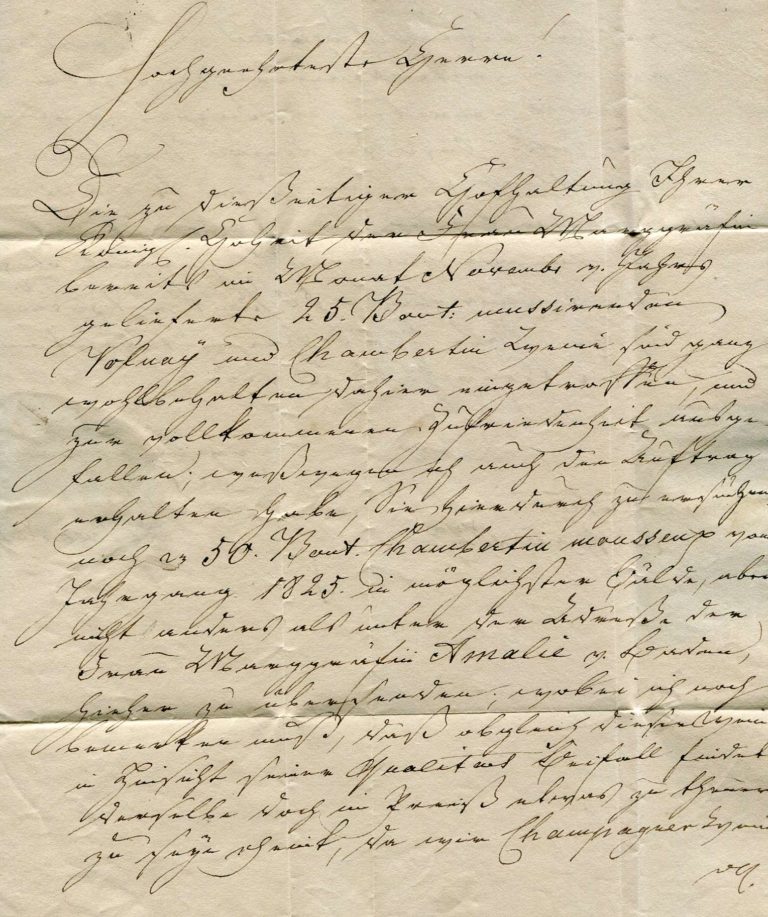 Hochgeehrteste Herrn!
Die zu diesseitiger Hofhaltung Ihrer
Königl. Hoheit der Frau Marggräfin
bereits im Monat Novembr v. Jahrs
gelieferte 25. Bout: mussirenden
Volnaÿ und Chambertin Weine sind ganz
wohlbehalten dahier eingetroffen, und
zur vollkommenen Zufriedenheit ausge-
fallen; weßwegen ich auch den Auftrag
erhalten habe, Sie hierdurch zu ersuchen
noch 50. Bout. Chambertin mousseux vom
Jahrgang 1825. in möglichster Bälde, aber
nicht anders als unter der Adreße der
Frau Marggräfin Amalie v. Baden,
hieher zu übersenden; wobei ich noch
bemerken muß, daß obgleich dieser Wein
in Hinsicht seiner Qualitaet Beifall findet
derselbe doch im Preiß etwas zu theuer
zu seyn scheint, da wir Champagner Wein